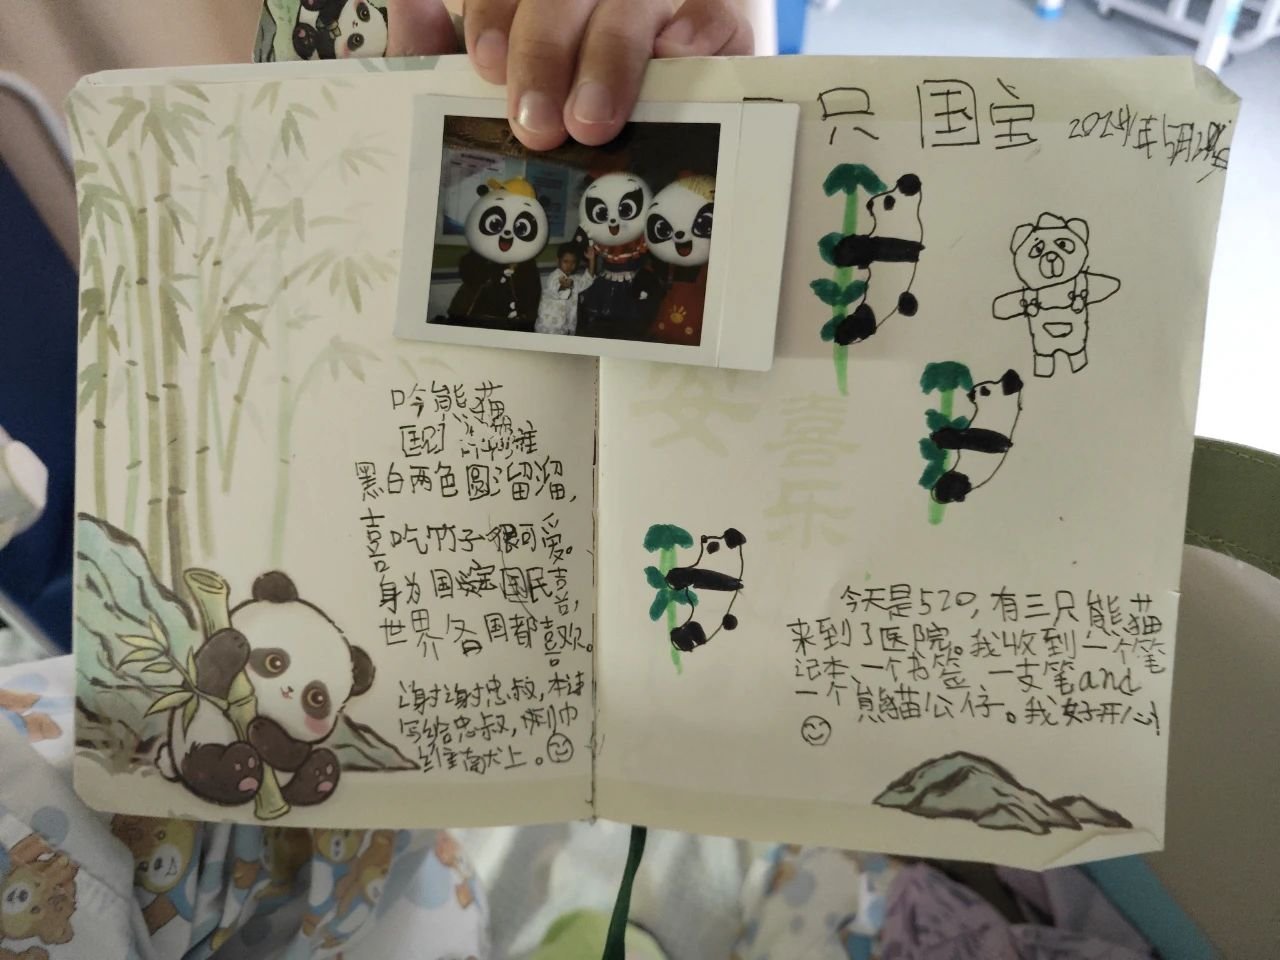 吟熊猫
黑白两色圆溜溜，
喜吃竹子很可爱。
身为国宝国民喜，
世界各国都喜欢。
谢谢忠叔，本诗
写给忠叔，
献上。
只国宝
2024年5月
安
喜
乐
今天是520，有三只熊猫
来到了医院。我收到一个笔
记本、一个书签、一支笔and
一个熊猫公仔。我好开心！